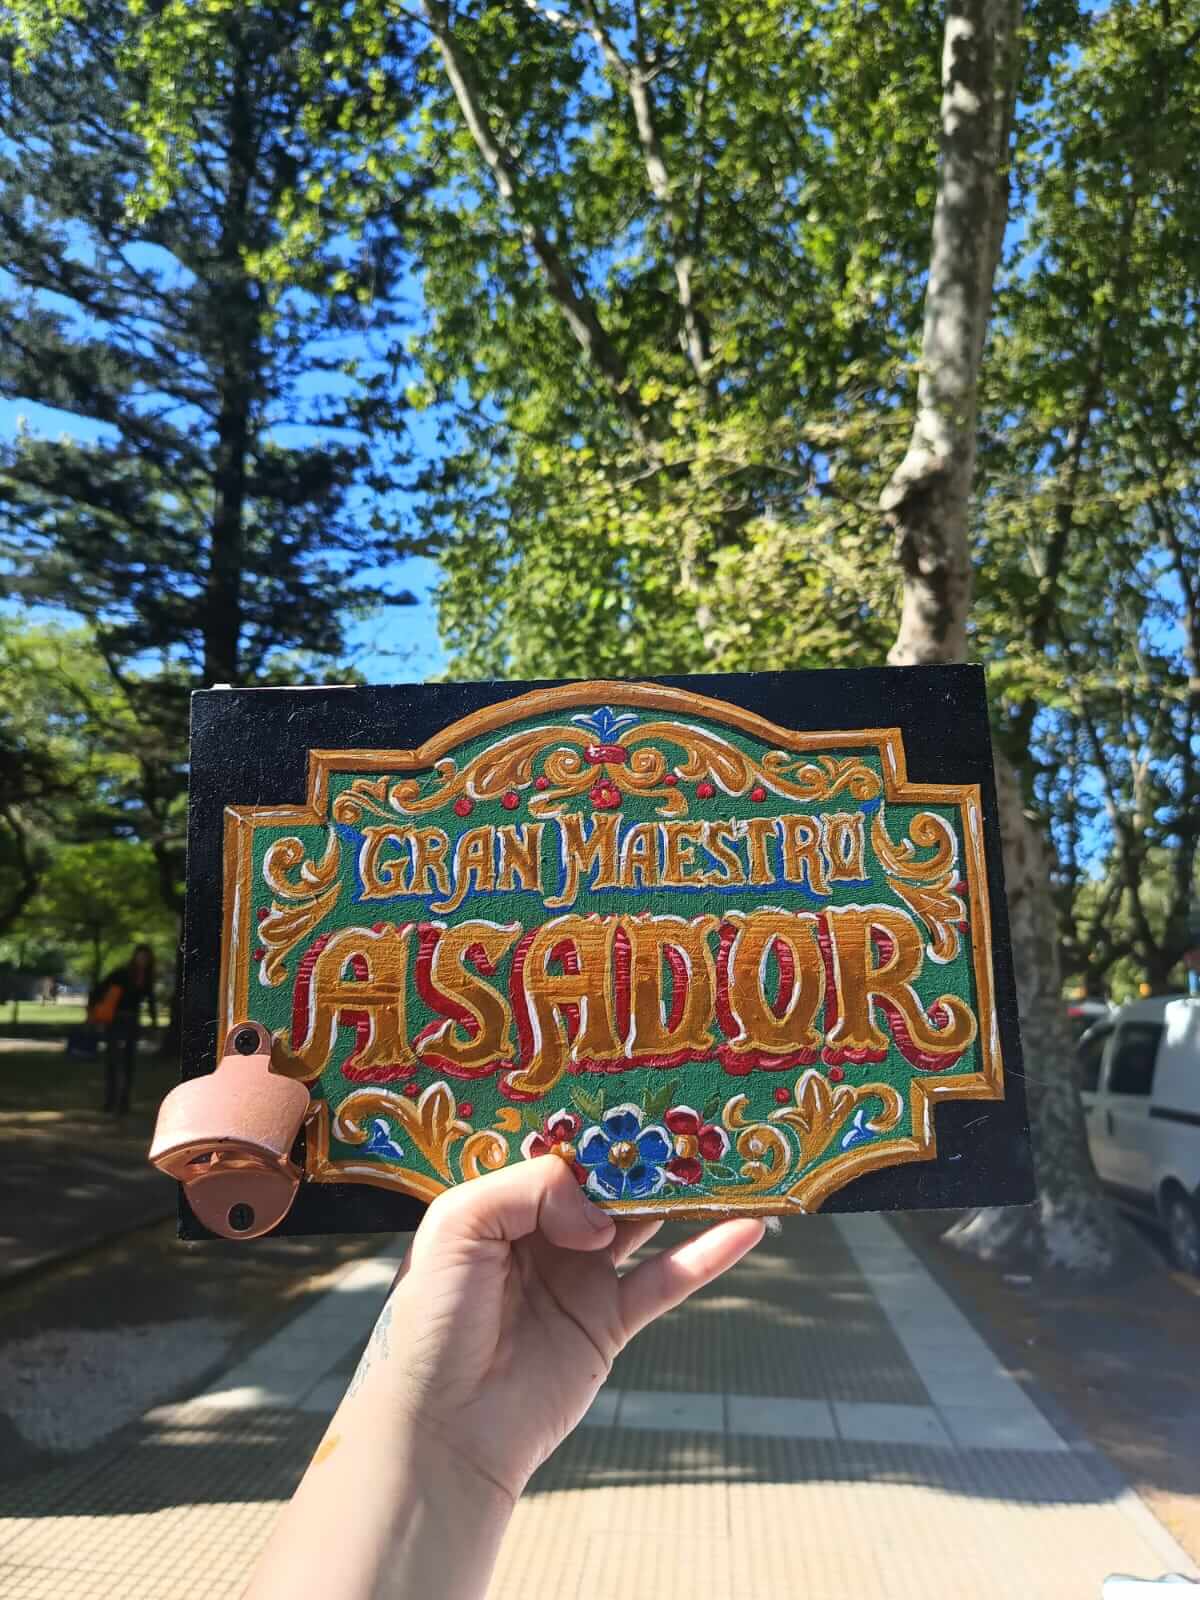 GRAN MAESTRO
ASADOR